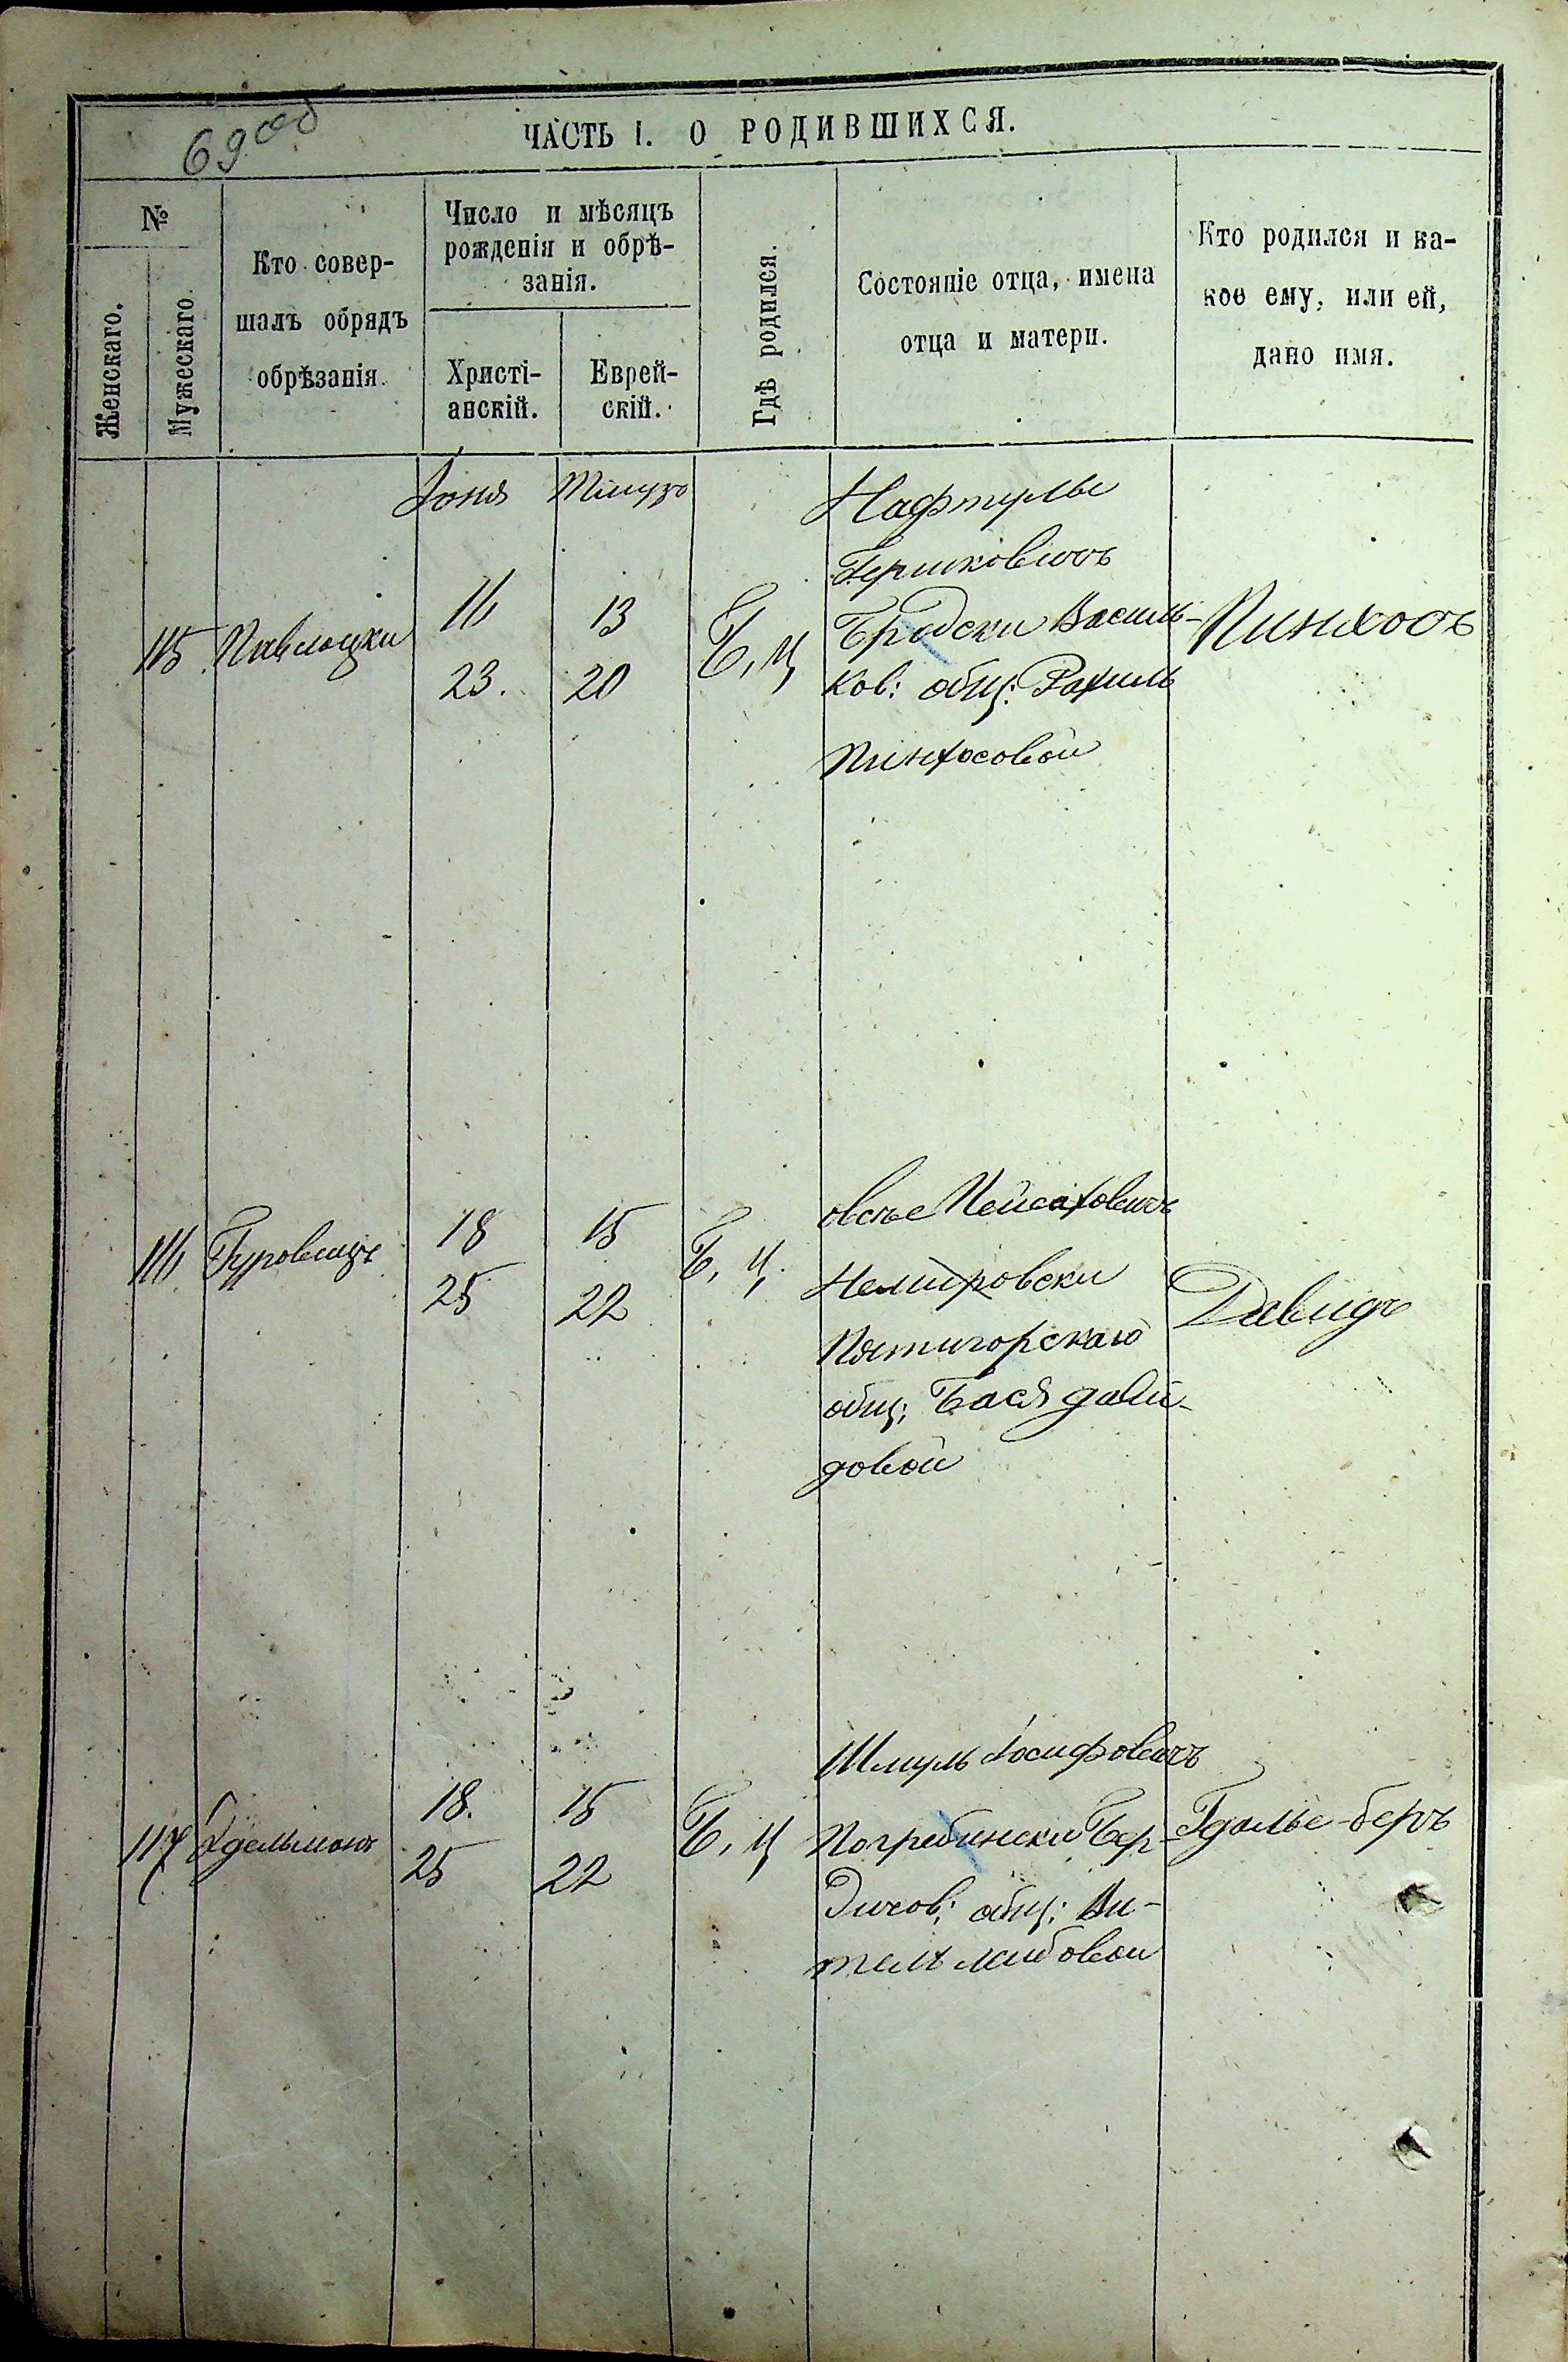 69 об
ЧАСТЬ I. О РОДИВШИХСЯ.
№
Женскаго.
Мужескаго.
Кто совер-
шалъ обрядъ
обрѣзанія.
Число и мѣсяцъ
рожденія и обрѣ-
занія.
Христі-
анскій.
Еврей-
скій.
Гдѣ родился.
Состояніе отца, имена
отца и матери.
Кто родился и ка-
кое ему, или ей,
дано имя.
Іюня
115
Павлоцки
16
23.
13
20
Б, Ц
Нафтулье
Гершковичъ
Бродски Василь-
ков: общ: Рахиль
Пинхосовой
Пинхосъ
116
Гуровицъ
18
25
15
22
Б, Ц.
Овсѣе Пейсаховичъ
Немировски
Пятигорскаго
общ: Бася дави-
довой
Давидъ
117
Эдельманъ
18.
25
15
22
Б, Ц
Шмуль Іосифовичъ
Погребински Бер-
дичов: общ: Ви-
тель лейбовой
Гдалье-беръ